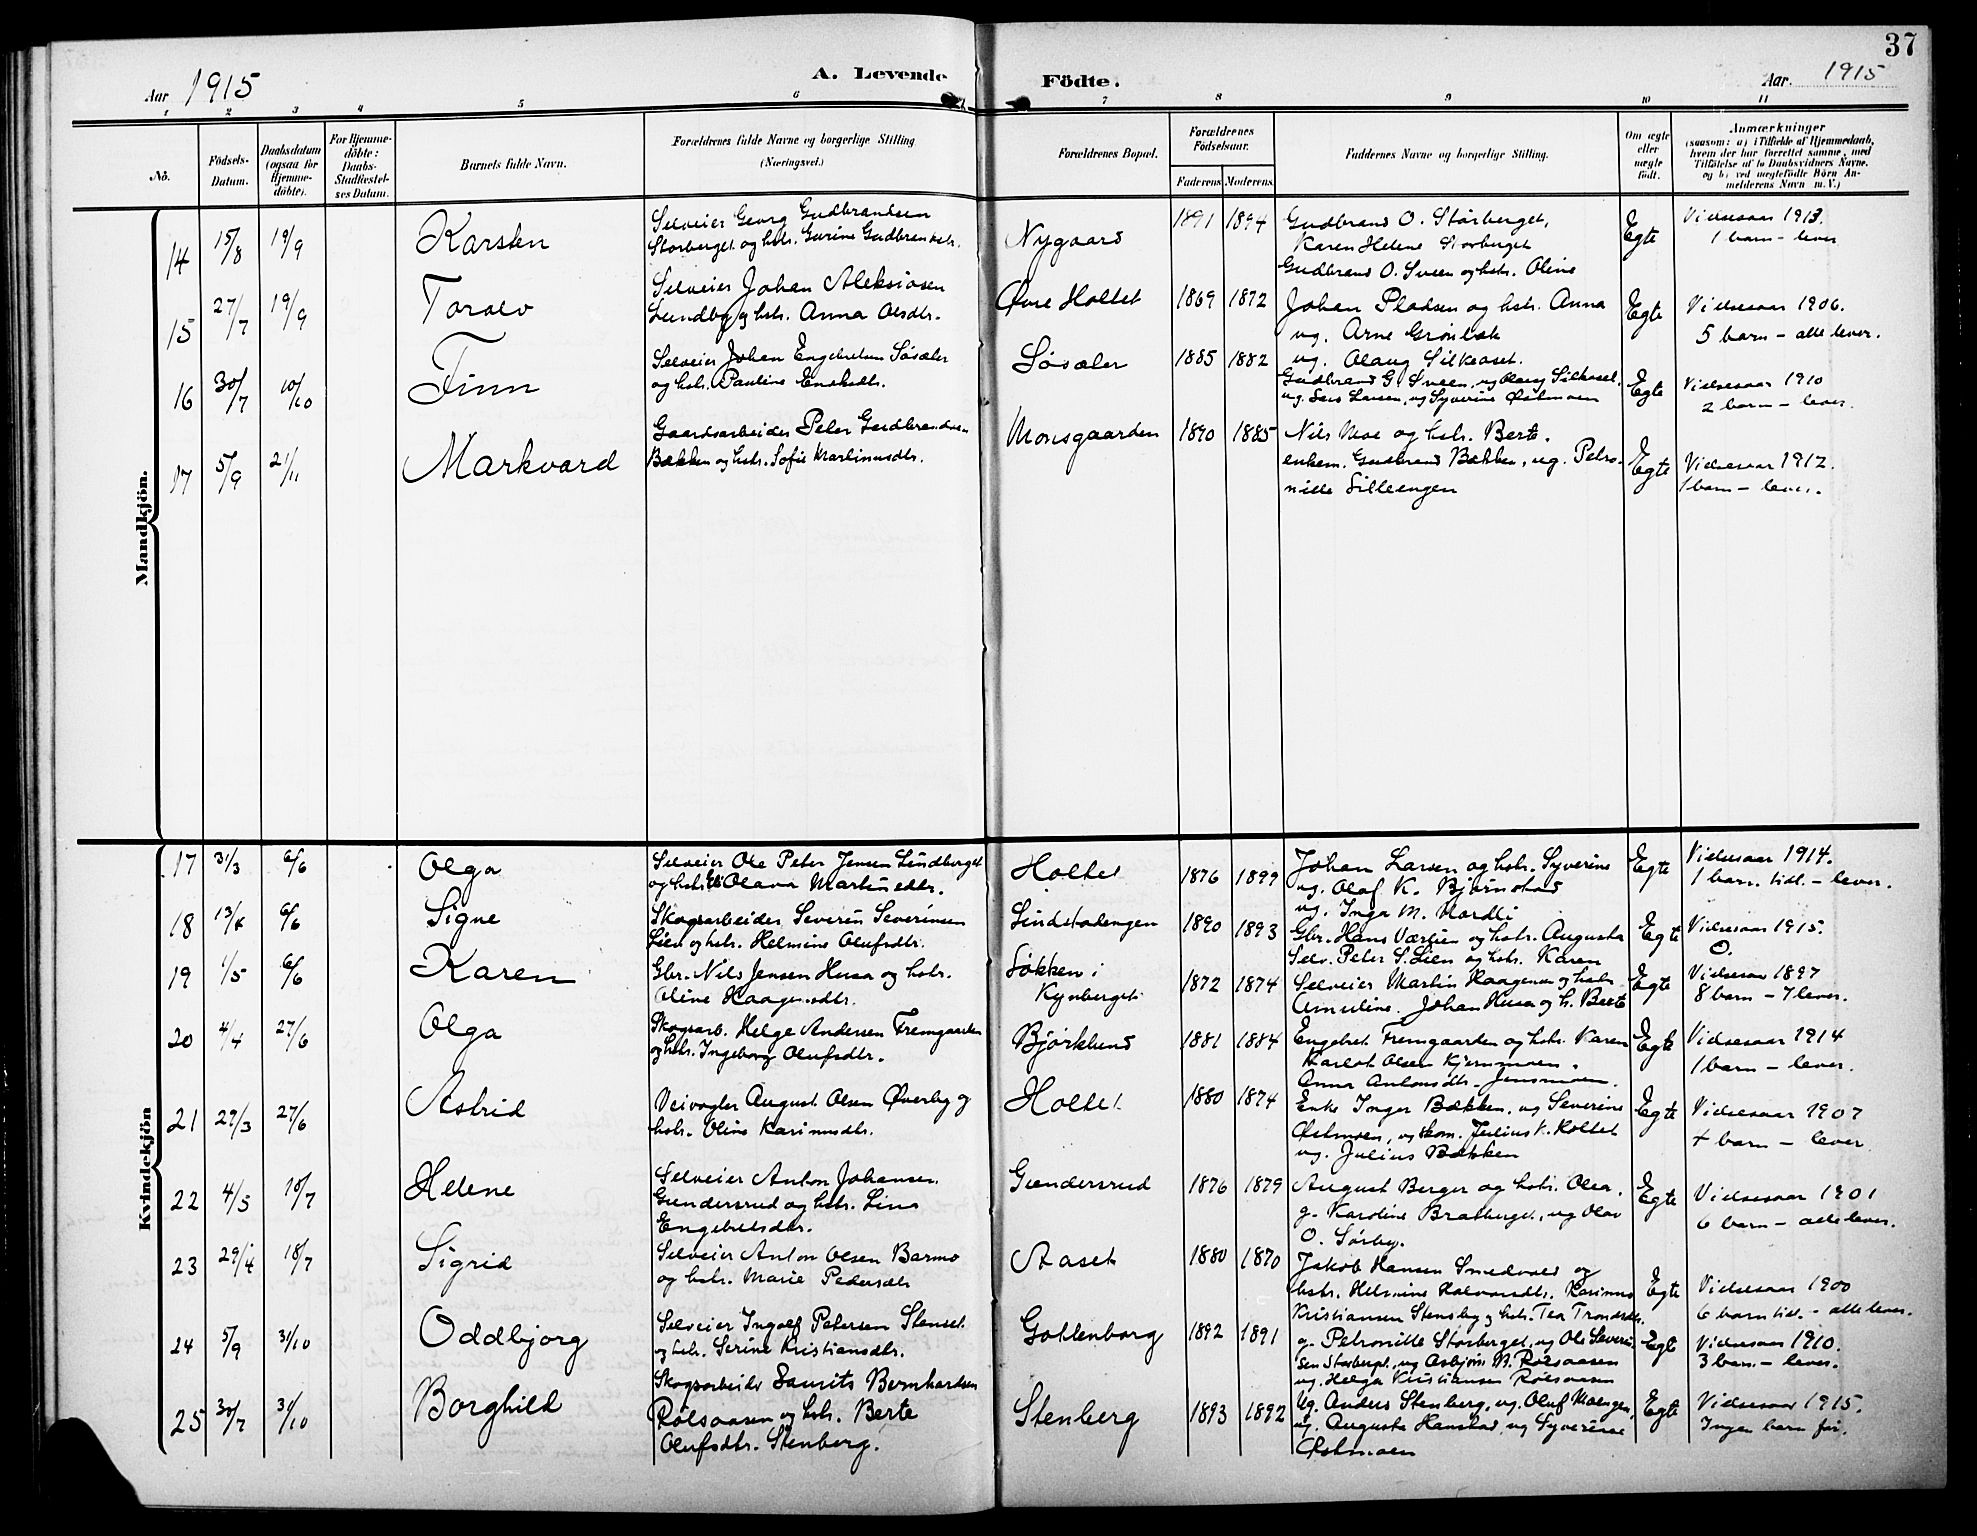 37
Aar 1915
A. Levende Födte.
Aar. 1915
1 2 3 4 5 6 7 8 9 10 11
No.
Födsels-Datum.
Daabsdatum (ogsaa for Hjemme-döbte).
For Hjemme-döbte: Daabs-Stadfæstel-ses Datum.
Barnets fulde Navn.
Forældrenes fulde Navne og borgerlige Stilling (Næringsvei.)
Forældrenes Bopæl.
Forældrenes Födselsaar.
Faderens Moderens
Faddernes Navne og borgerlige Stilling.
Om ægte eller uægte födt.
Anmærkninger (saasom: a) i Tilfælde af Hjemmedaab, hvem der har forrettet samme, med Tilföielse af to Daabsvidners Navne, og b) ved uægtefödte Börn An-melderens Navn m. V.)
Mandkjön.
14 15/8 19/9 Karsten
Selveier Georg Gudbrandsen
Storberget og hstr. Gurine Gudbrandsdtr.
Nygaard 1891 1894
Gudbrand O. Storberget,
Karen Helene Storberget
Gudbrand O. Sveen og hstr. Oline
Egte
Vielsesaar 1913.
1 barn – lever
15 27/7 19/9 Toralv
Selveier Johan Aleksiasen
Lundby og hstr. Anna Olsdtr.
Øvre Holtet 1869 1872
Johan Pladsen og hstr. Anna
ug. Arne Grønbæk
ug. Olaug Silkeaset.
Egte
Vielsesaar 1906.
5 barn – alle lever.
16 30/7 10/10 Finn
Selveier Johan Engebretsen Søsæter
og hstr. Pauline Eriksdtr.
Søsæter 1885 1882
Gudbrand G. Sveen, ug Olaug Silkeset.
ug. Lars Larsen, ug Syverine Østmoen
Egte
Vielsesaar 1910
2 barn – lever.
17 5/9 21/11 Markvard
Gaardsarbeider Peter Gudbrandsen
Bækken og hstr. Sofie Martinusdtr.
Monsgaarden 1890 1885
Nils Moe og hstr. Berte.
enkem. Gudbrand Bækken, ug. Petro-
nille Lilleengen
Egte
Vielsesaar 1912.
1 barn – lever.
Kvindekjön
17 31/3 6/6 Olga
Selveier Ole Peter Jensen Lindberget
og hstr. Olava Martinsdtr.
Holtet 1876 1899
Johan Larsen og hstr. Syverine
ug. Olaf K. Bjørnstad
ug. Inga M. Nordli
Egte
Vielsesaar 1914.
1 barn. tidl. – lever.
18 13/4 6/6 Signe
Skogsarbeider Severin Severinsen
Lien og hstr. Helmine Olufsdtr.
Lindstadengen 1890 1893
Gbr. Hans Værlien og hstr. Augusta
Selv. Peter S. Lien og hstr. Karen
Egte
Vielsesaar 1915.
0.
19 1/5 6/6 Karen
Gbr. Nils Jensen Husa og hstr.
Oline Haagensdtr.
Løkken i
Kynberget 1872 1874
Selveier Martin Haagensen og hstr.
Amuline. Johan Husa og h. Berte
Egte
Vielsesaar 1897
8 barn – 7 lever.
20 4/4 27/6 Olga
Skogsarb. Helge Andersen Fremgaarden
og hstr. Ingeborg Olufsdtr.
Bjørklund 1881 1884
Engebret Fremgaarden og hstr. Karen
Karlot Olsen Kjernmoen.
Anna Antonsdtr. Jensmoen.
Egte
Vielsesaar 1914
1 barn – lever.
21 29/3 27/6 Astrid
Veivogter August Olsen Øverby og
hstr. Oline Karinusdtr.
Holtet 1880 1874
Enke Inger Bækken, ug Severine
Østmoen, ug skom. Julius K. Holtet
ug. Julius Bækken
Egte
Vielsesaar 1907
4 barn – lever
22 4/5 18/7 Helene
Selveier Anton Johansen
Gundersrud og hstr. Lina
Engebretsdtr.
Gundersrud 1876 1879
August Berger og hstr. Olea.
g. Karoline Bratberget, ug Olav
O. Sørby.
Egte
Vielsesaar 1901
6 barn – alle lever.
23 29/4 18/7 Sigrid
Selveier Anton Olsen Barmo
og hstr. Marie Pedersdtr
Aaset 1880 1870
Jakob Hansen Smedvold og
hstr. Helmine Halvorsdtr. Karinus
Kristiansen Stensby og hstr. Tea Trondsdtr.
Egte
Vielsesaar 1900
6 barn tidl. – alle lever.
24 5/9 31/10 Oddbjørg
Selveier Ingolf Petersen Stenset
og hstr. Serine Kristiansdtr.
Gottenborg 1892 1891
g. Petronille Storberget, ug Ole Severin-
sen Storberget, ug Asbjørn N. Rolsaasen
ug. Helga Kristiansen Rolsaasen
Egte
Vielsesaar 1910.
3 barn – lever.
25 30/7 31/10 Borghild
Skogsarbeider Laurits Bernhardsen
Rolsaasen og hstr. Berte
Olufsdtr. Stenberg.
Stenberg 1893 1892
Ug. Anders Stenberg, ug. Oluf Moengen,
ug. Augusta Hanstad, ug Syverine
Østmoen
Egte
Vielsesaar 1915.
Ingen barn før.